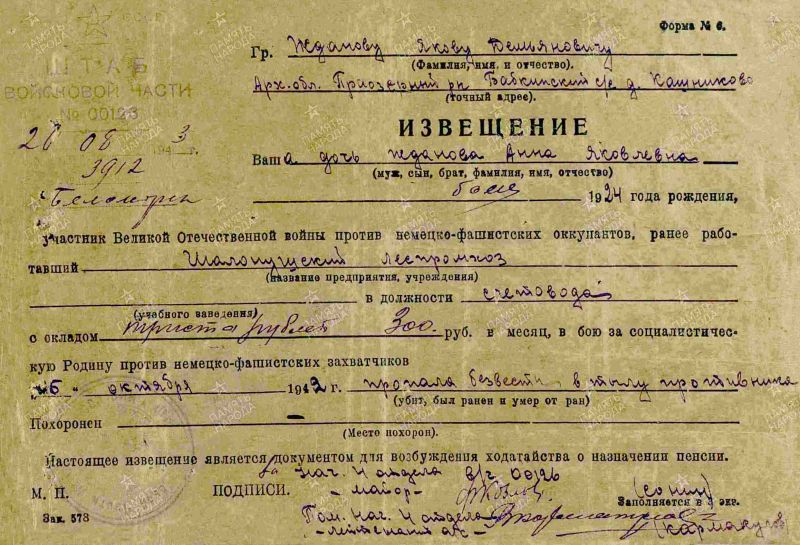 СССР
ШТАБ
ВОЙСКОВОЙ ЧАСТИ
№ 00126
26 08 1943 г.
3912
г. Беломорск
Форма № 6.
Гр. Жданову Якову Демьяновичу
(Фамилия, имя, и отчество).
Арх. обл. Приозерный р-н Бабкинский с/с д. Кашниково
(точный адрес).
ИЗВЕЩЕНИЕ
Ваша дочь Жданова Анна Яковлевна
(муж, сын, брат, фамилия, имя, отчество)
боец 1924 года рождения,
участник Великой Отечественной войны против немецко-фашистских оккупантов, ранее рабо-
тавший Шалокушский леспромхоз
(название предприятия, учреждения)
в должности счетовода
(учебного заведения)
с окладом триста рублей 300 руб. в месяц, в бою за социалистичес-
кую Родину против немецко-фашистских захватчиков
"6" октября 1942 г. пропала безвести, в тылу противника
(убит, был ранен и умер от ран)
Похоронен –
(Место похорон).
Настоящее извещение является документом для возбуждения ходатайства о назначении пенсии.
Нач. 4 отдела в/ч 00126
М. П. ПОДПИСИ. – майор – (Сонин)
Заполняется в 3 экз.
Зак. 573 Пом. нач. 4 отдела
– лейтенант а/с –